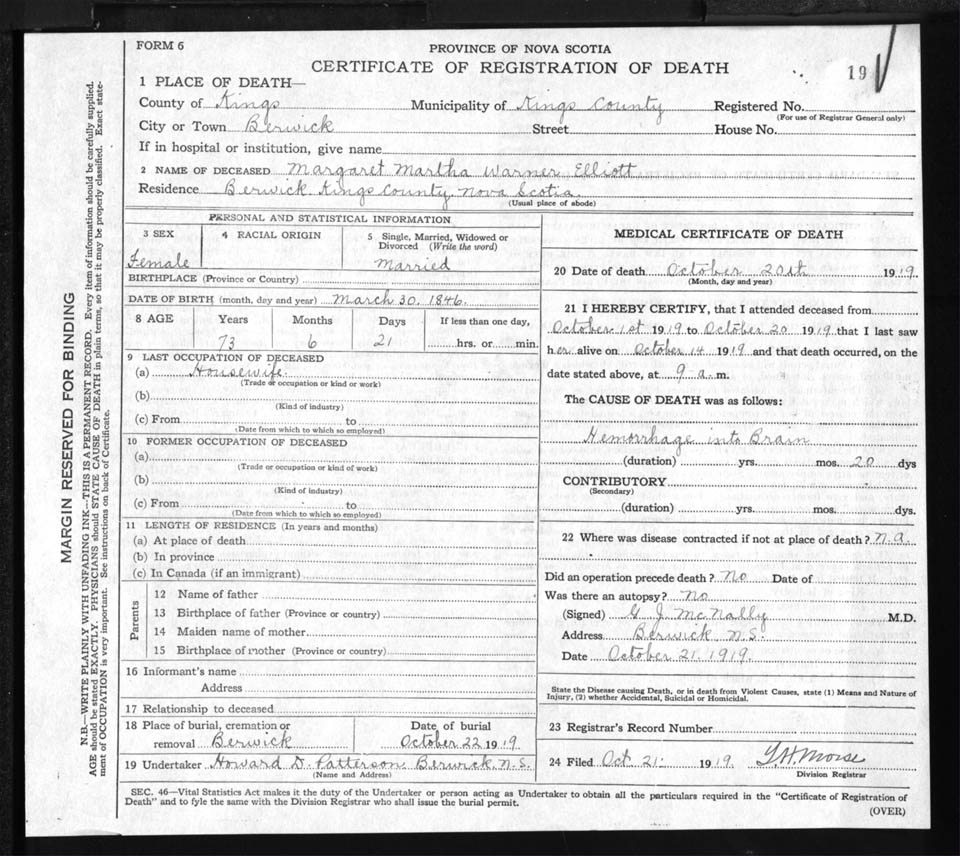 FORM 6
PROVINCE OF NOVA SCOTIA
CERTIFICATE OF REGISTRATION OF DEATH
19
1 PLACE OF DEATH—
County of Kings Municipality of Kings County Registered No.
(For use of Registrar General only)
City or Town Berwick Street House No.
If in hospital or institution, give name
2 NAME OF DECEASED Margaret Martha Warner Elliott
Residence Berwick Kings County Nova Scotia.
(Usual place of abode)
PERSONAL AND STATISTICAL INFORMATION
3 SEX 4 RACIAL ORIGIN 5 Single, Married, Widowed or Divorced (Write the word)
Female Married
BIRTHPLACE (Province or Country)
DATE OF BIRTH (month, day and year) March 30, 1846.
8 AGE Years Months Days If less than one day,
73 6 21 hrs. or min.
9 LAST OCCUPATION OF DECEASED
(a) Housewife.
(Trade or occupation or kind or work)
(b)
(Kind of industry)
(c) From to
(Date from which to which so employed)
10 FORMER OCCUPATION OF DECEASED
(a)
(Trade or occupation or kind of work)
(b)
(Kind of industry)
(c) From to
(Date from which to which so employed)
11 LENGTH OF RESIDENCE (In years and months)
(a) At place of death
(b) In province
(c) In Canada (if an immigrant)
Parents
12 Name of father
13 Birthplace of father (Province or country)
14 Maiden name of mother
15 Birthplace of mother (Province or country)
16 Informant's name
Address
17 Relationship to deceased
18 Place of burial, cremation or Date of burial
removal Berwick October 22 1919
19 Undertaker Howard D. Patterson Berwick, N.S.
(Name and Address)
MEDICAL CERTIFICATE OF DEATH
20 Date of death October 20th 1919
(Month, day and year)
21 I HEREBY CERTIFY, that I attended deceased from
October 1st 1919 to October 20 1919 that I last saw
her alive on October 14 1919 and that death occurred, on the
date stated above, at 9 a. m.
The CAUSE OF DEATH was as follows:
Hemorrhage into Brain
(duration) yrs. mos. 20 dys
CONTRIBUTORY
(Secondary)
(duration) yrs. mos. dys.
22 Where was disease contracted if not at place of death? n.a.
Did an operation precede death? No Date of
Was there an autopsy? No
(Signed) G J McNally M.D.
Address Berwick N.S.
Date October 21. 1919.
State the Disease causing Death, or in death from Violent Causes, state (1) Means and Nature of
Injury, (2) whether Accidental, Suicidal or Homicidal.
23 Registrar's Record Number
24 Filed Oct 21: 1919. Morse
Division Registrar
SEC. 46—Vital Statistics Act makes it the duty of the Undertaker or person acting as Undertaker to obtain all the particulars required in the "Certificate of Registration of
Death" and to fyle the same with the Division Registrar who shall issue the burial permit.
(OVER)
MARGIN RESERVED FOR BINDING
N.B.—WRITE PLAINLY WITH UNFADING INK—THIS IS A PERMANENT RECORD. Every item of information should be carefully supplied.
AGE should be stated EXACTLY. PHYSICIANS should STATE CAUSE OF DEATH in plain terms, so that it may be properly classified. Exact state-
ment of OCCUPATION is very important. See instructions on back of Certificate.